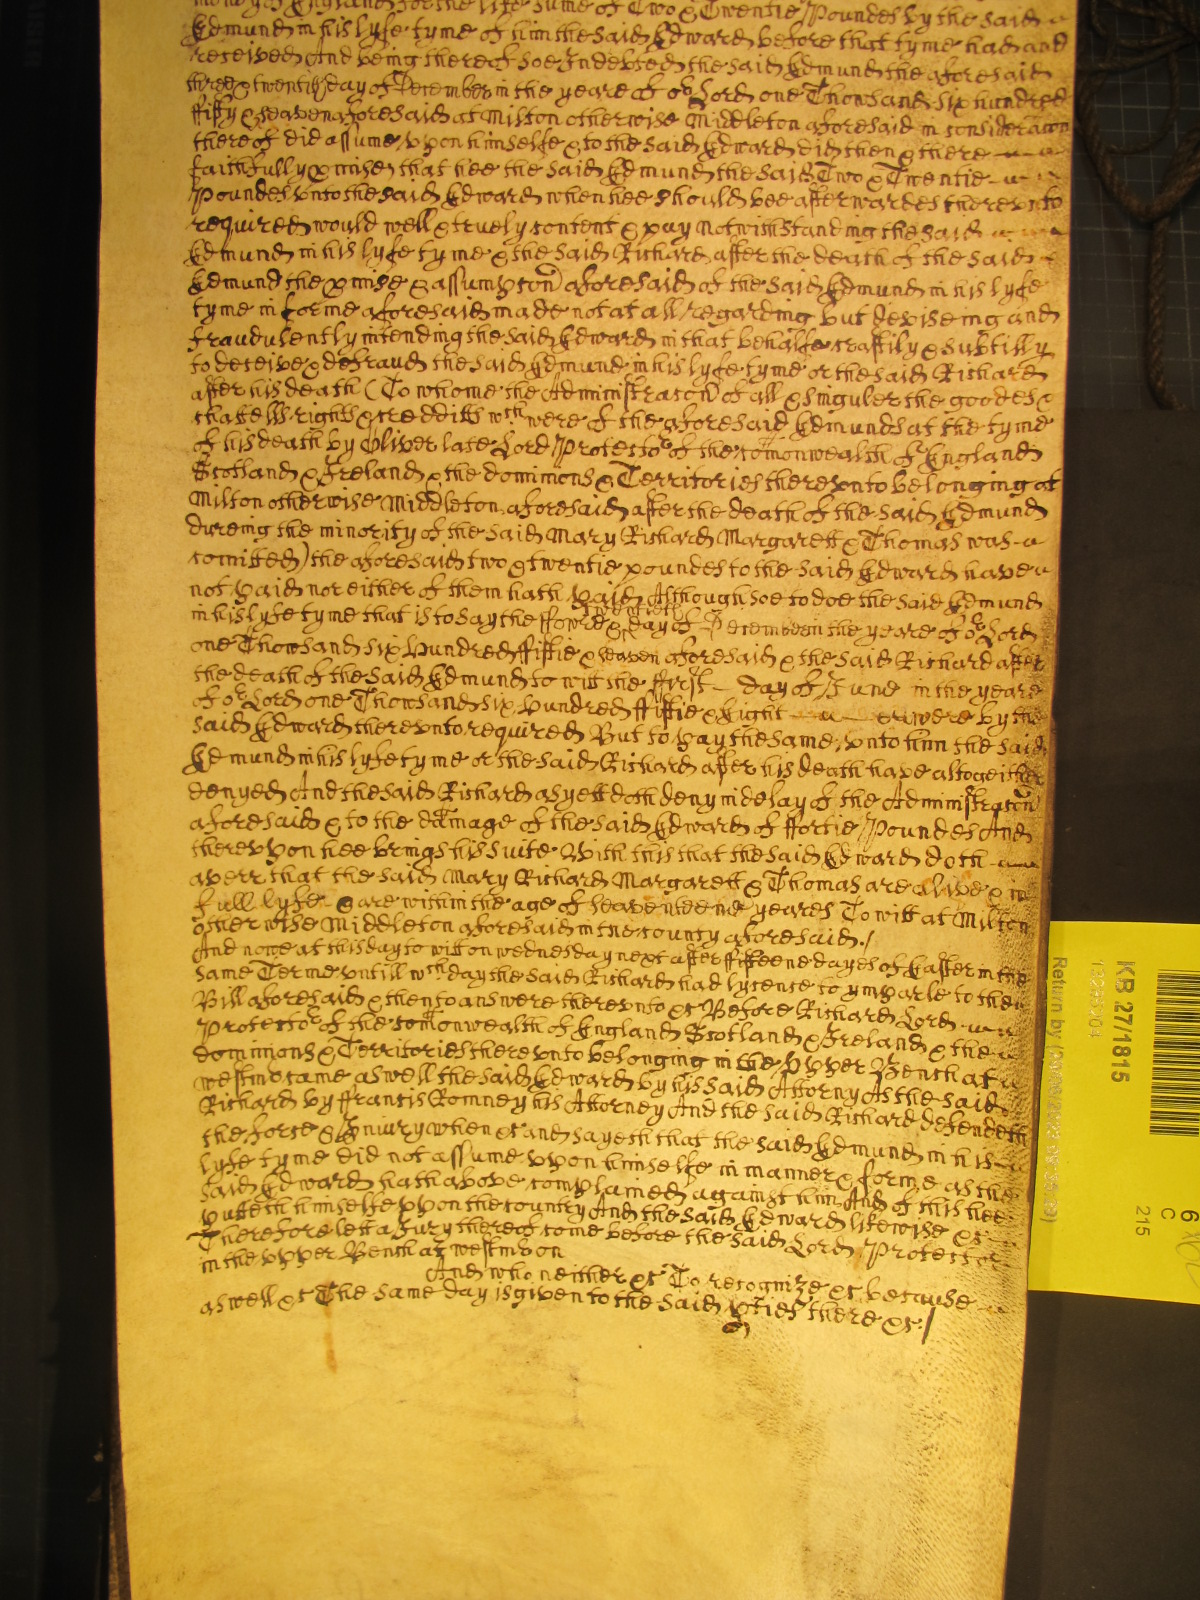 moneys of England for the like sume of Two & Twentie Poundes by the said
Edmund in his lyfe tyme of him the said Edward before that tyme had and
received And being thereof soe Indebted the said Edmund the aforesaid
three & twentith day of December in the yeare of or Lord one Thousand six hundred
fifty & seaven aforesaid at Milton otherwise Middleton aforesaid in consideracon
thereof did assume upon himselfe & to the said Edward did then & there
faithfully pmise that hee the said Edmund the said Two & Twentie
Poundes unto the said Edward when hee should bee afterwardes thereunto
required would well & truely content & pay Notwithstanding the said
Edmund in his lyfe tyme & the said Richard after the death of the said
Edmund the pmise & assumpcon aforesaid of the said Edmund in his lyfe
tyme in forme aforesaid made not at all regarding but deviseing and
fraudulently intending the said Edward in that behalfe craftily & subtilly
to deceive & defraud the said Edmund in his lyfe tyme or the said Richard
after his death (To whome the Administracon of all & singuler the goodes &
chatells rights & creddits wch were of the aforesaid Edmunds at the tyme
of his death by Oliver late Lord Protector of the comonwealth of England
Scotland & Ireland & the dominions & Territories thereunto belonging at
Milton otherwise Middleton aforesaid after the death of the said Edmund
dureing the minority of the said Mary Richard Margarett & Thomas was
comitted) the aforesaid two & twentie poundes to the said Edward have
not paid nor either of them hath paid Although soe to doe the said Edmund
in his lyfe tyme that is to say the fowre & twentieth day of December in the yeare of or Lord
one Thousand six hundred fiftie & seaven aforesaid & the said Richard after
the death of the said Edmund to witt the first day of June in the yeare
of or Lord one Thousand six hundred fiftie & Eight were by the
said Edward thereunto required But to pay the same unto him the said
Edmund in his lyfe tyme or the said Richard after his death have altogeither
denyed And the said Richard as yett doth deny in delay of the Administracon
aforesaid & to the damage of the said Edward of fortie Poundes And
thereupon hee brings his suite With this that the said Edward doth
averr that the said Mary Richard Margarett & Thomas are alive & in
full lyfe & are within the age of seaventeene yeares To witt at Milton
otherwise Middleton aforesaid in the county aforesaid./
And nowe at this day to witt on wednesday next after fifteene dayes of Easter in the
same Terme untill wch day the said Richard had lycence to ymparle to the
Bill aforesaid & then to answere thereunto &c Before Richard Lord
Protector of the comonwealth of England Scotland & Ireland & the
dominions & Territories thereunto belonging in the Upper Bench at
westm came aswell the said Edward by his said Attorny As the said
Richard by Francis Romney his Attorney And the said Richard defendeth
the force & Iniury when &c and sayeth that the said Edmund in his
lyfe tyme did not assume upon himselfe in manner & forme as the
said Edward hath above complained against him And of this hee
putteth himselfe upon the country And the said Edward likewise &c
Therefore lett a Jury thereof come before the said Lord Protector
in the upper Bench at westm on
And who neither &c To recognize &c because
aswell &c The same day is given to the said pties there &c./
KB 27/1815
13285204
Return by
6
C
215